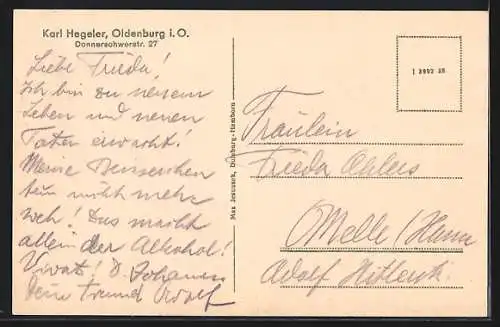 Karl Hegeler, Oldenburg i. O.
Donnerschwerstr. 27
Liebe Frieda!
Ich bin zu neuem
Leben und neuen
Taten erwacht!
Meine
tun nicht mehr
weh! Das macht
allein der Alkohol!
Vivat! D. Johannes
Dein Freund Adolf
Max Jesussek, Duisburg-Hamborn
I 3992 38
Fräulein
Frieda Ahlers
Melle / Hann
Adolf Hitlerstr.